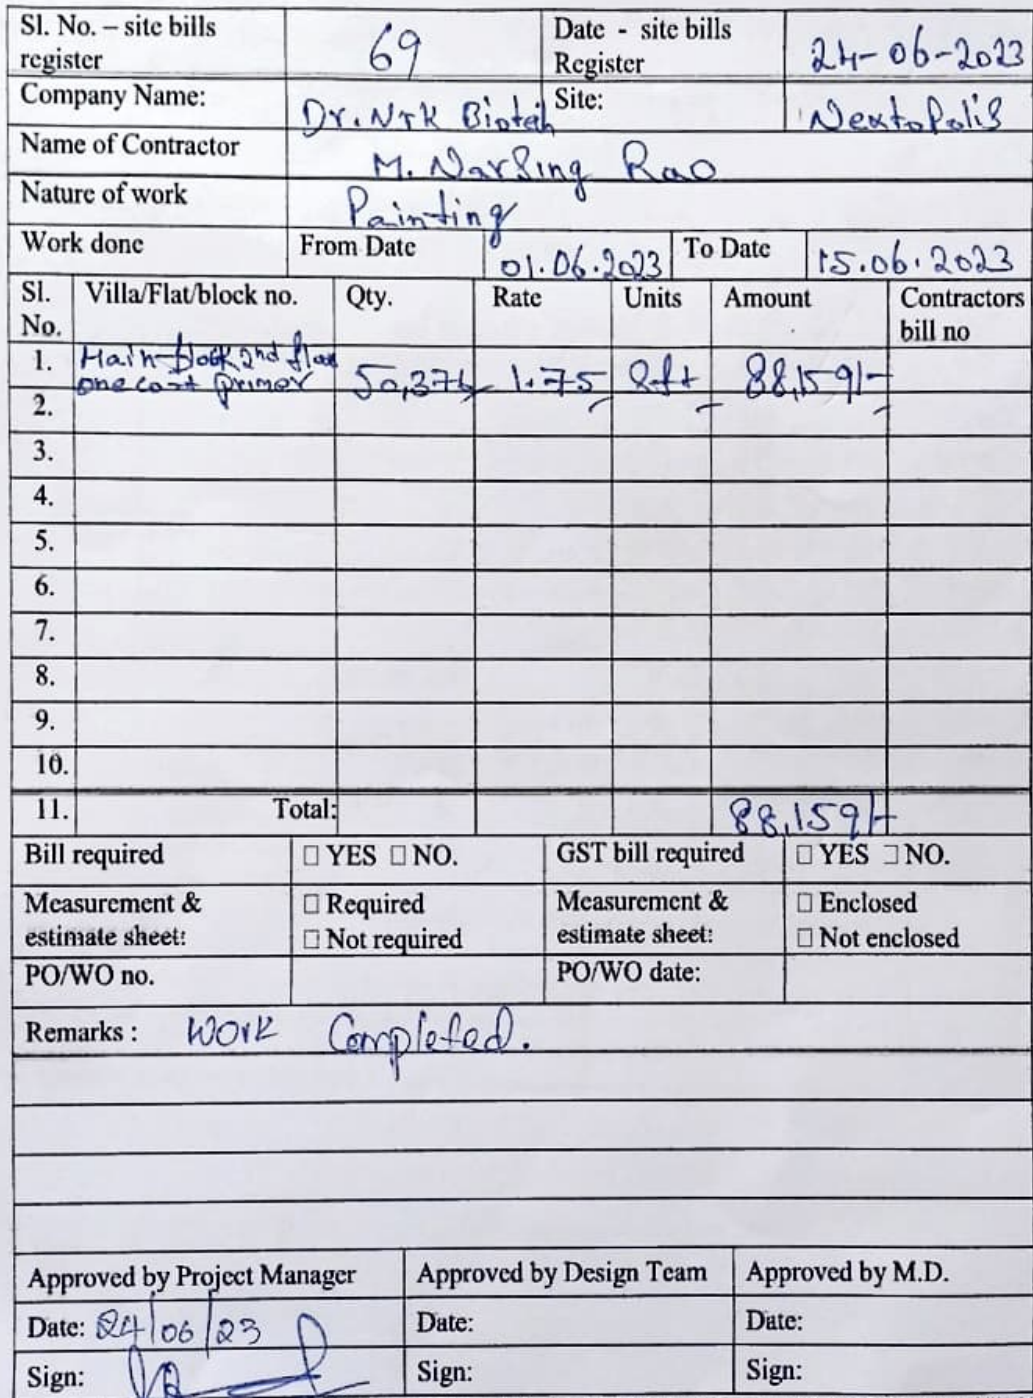 Sl. No. – site bills register 69 Date - site bills Register 24-06-2023
Company Name: Dr. NTK Biotech Site: Nextopolis
Name of Contractor M. Narsing Rao
Nature of work Painting
Work done From Date 01.06.2023 To Date 15.06.2023
Sl. No. Villa/Flat/block no. Qty. Rate Units Amount Contractors bill no
1. Main block 2nd floor one coat primer 50,376 1.75 Sft 88,159/-
2.
3.
4.
5.
6.
7.
8.
9.
10.
11. Total: 88,159/-
Bill required □ YES □ NO. GST bill required □ YES □ NO.
Measurement & estimate sheet: □ Required □ Not required Measurement & estimate sheet: □ Enclosed □ Not enclosed
PO/WO no. PO/WO date:
Remarks : Work Completed.
Approved by Project Manager Approved by Design Team Approved by M.D.
Date: 24/06/23 Date: Date:
Sign: Sign: Sign: